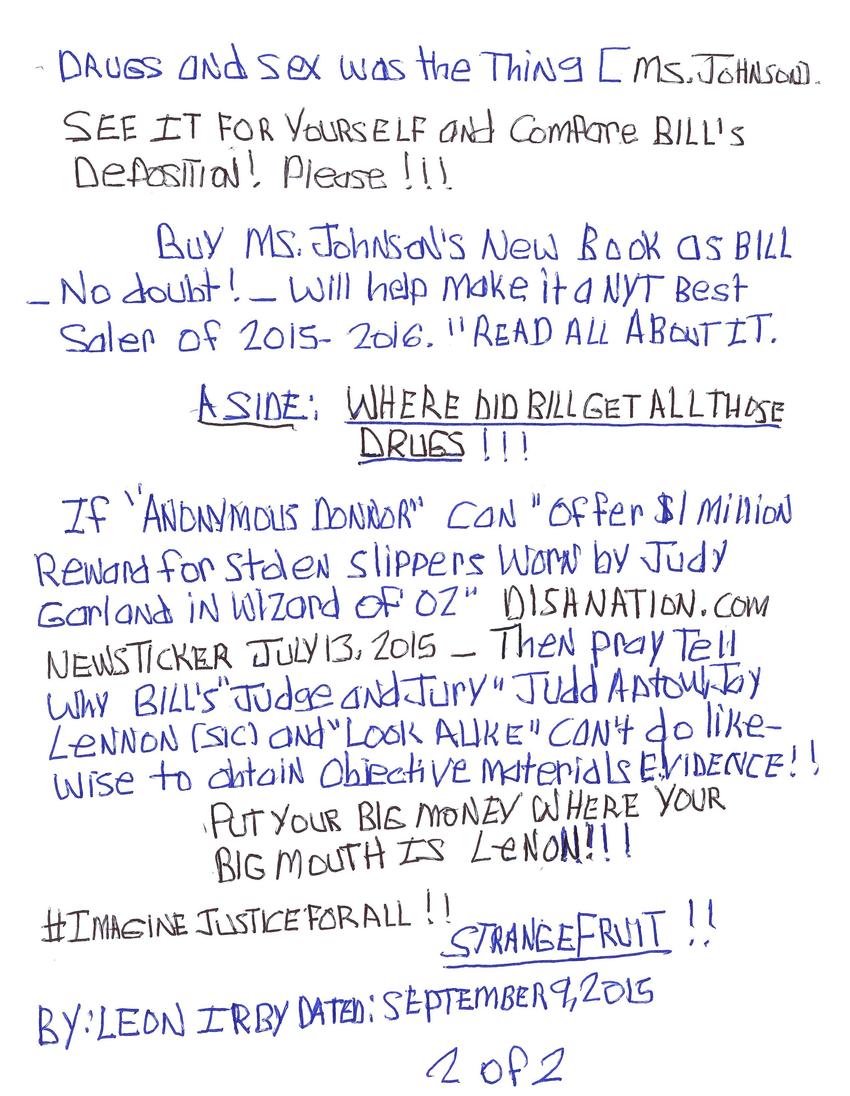 DRUGS and Sex was the Thing [Ms. JOHNSON].
SEE IT FOR YOURSELF and Compare BILL's
Deposition! Please !!!
Buy Ms. Johnson's New Book as BILL
_ No doubt! _ Will help make it a NYT Best
Saler of 2015- 2016. "READ ALL ABOUT IT.
ASIDE: WHERE DID BILL GET ALL THOSE
DRUGS !!!
If "ANONYMOUS DONNOR" CAN "offer $1 Million
Reward for Stolen Slippers Worn by Judy
Garland in Wizard of OZ" DISHNATION.COM
NEWSTICKER JULY 13, 2015 _ Then pray Tell
Why BILL's "Judge and Jury" Judd Aptow, Jay
LENNON (SIC) and "LOOK ALIKE" CAN't do like-
Wise to obtain Objective materials EVIDENCE!!
PUT YOUR BIG MONEY WHERE YOUR
BIG MOUTH IS LENON!!!
#IMAGINE JUSTICE FOR ALL !!
STRANGE FRUIT !!
BY: LEON IRBY DATED: SEPTEMBER 9, 2015
2 of 2